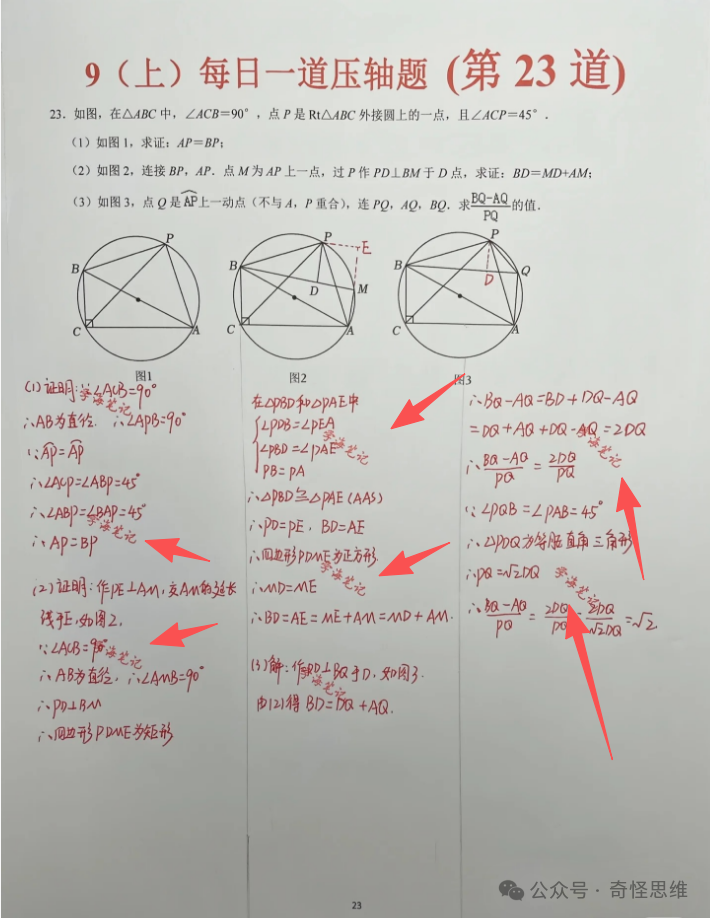 9（上）每日一道压轴题 (第 23 道)
23．如图，在△ABC 中，∠ACB=90°，点 P 是 Rt△ABC 外接圆上的一点，且∠ACP=45°．
（1）如图 1，求证：AP=BP；
（2）如图 2，连接 BP，AP．点 M 为 AP 上一点，过 P 作 PD⊥BM 于 D 点，求证：BD=MD+AM；
（3）如图 3，点 Q 是A͡P上一动点（不与 A，P 重合），连 PQ，AQ，BQ．求BQ-AQ/PQ的值．
P
B
C
A
图1
P
E
B
D
M
C
A
图2
P
B
D
Q
C
A
图3
(1) 证明：∵∠ACB=90°
学海笔记
∴AB为直径．∴∠APB=90°
∵A͡P=A͡P
∴∠ACP=∠ABP=45°
∴∠ABP=∠BAP=45°
学海笔记
∴AP=BP
(2) 证明：作PE⊥AM，交AM的延长
线于E，如图2，
∵∠ACB=90°
学海笔记
∴AB为直径，∴∠AMB=90°
∴PD⊥BM
∴四边形PDME为矩形
在△PBD和△PAE中
∠PDB=∠PEA
∠PBD=∠PAE
PB=PA
学海笔记
∴△PBD≌△PAE(AAS)
∴PD=PE，BD=AE
∴四边形PDME为正方形．
∴MD=ME
学海笔记
∴BD=AE=ME+AM=MD+AM．
(3) 解：作PD⊥BQ于D，如图3．
学海笔记
由(2)得 BD=DQ+AQ．
∴BQ-AQ=BD+DQ-AQ
=DQ+AQ+DQ-AQ=2DQ
学海笔记
∴BQ-AQ/PQ=2DQ/PQ
∵∠PQB=∠PAB=45°
∴△PDQ为等腰直角三角形
∴PQ=√2DQ
学海笔记
∴BQ-AQ/PQ=2DQ/PQ=2DQ/√2DQ=√2．
23
公众号 · 奇怪思维